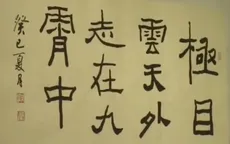 極目
雲天外
志在九
霄中
癸巳夏月